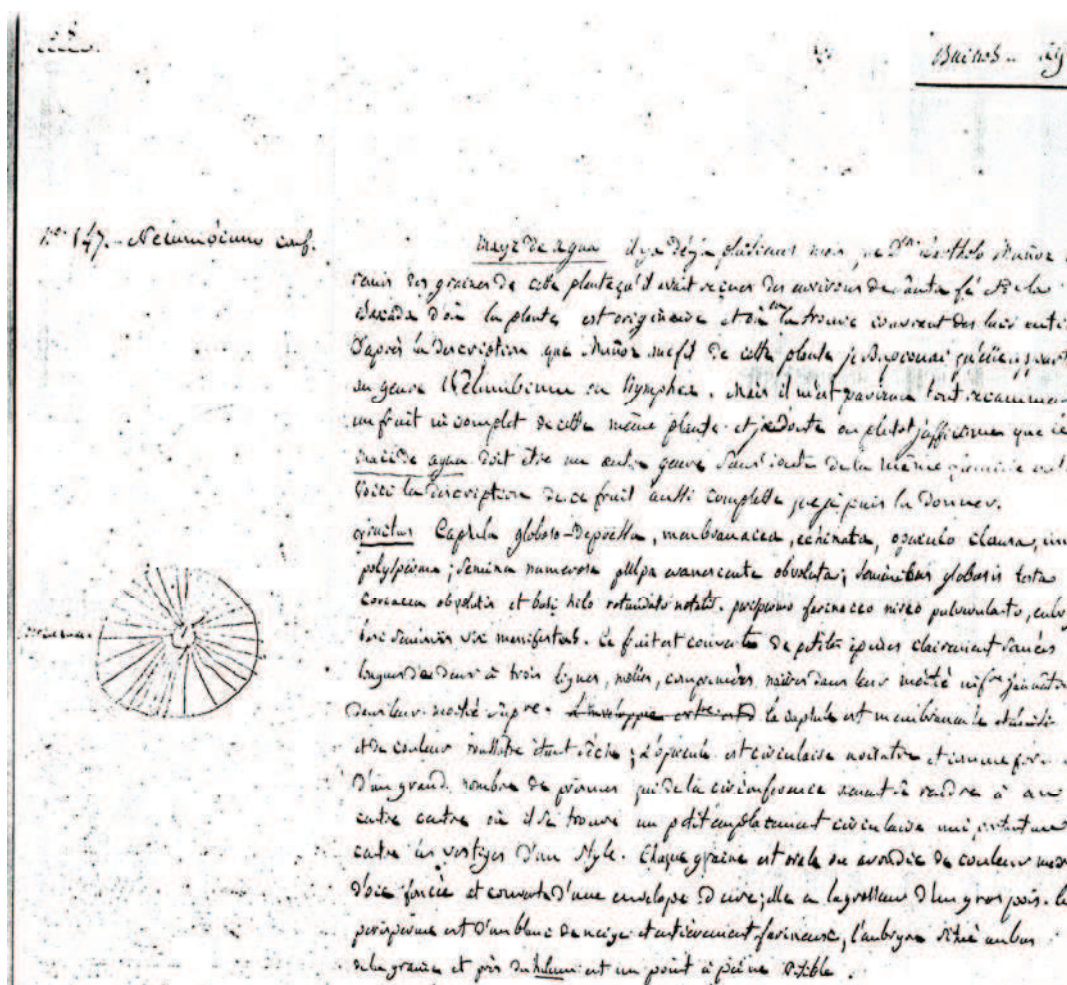 58.
Buenos-Ay
N.º 147. - Nelumbium conf.
mayz de agua il y a déja plusieurs mois, que D.n Bartholo Muñoz
remis des graines de cette plante qu'il avait reçues des environs de Santa fé et de la
Baxada d'où la plante est originaire et où on la trouve couvrant des lacs enti
D'après la description que Muñoz me fit de cette plante je supposai qu'elle appart
au genre Nelumbium ou Nymphea. Mais il m'est parvenu tout recemmen
un fruit incomplet de cette même plante et je doute ou plutot j'affirme que le
maïz de agua doit être un autre genre sans doute de la même famille
Voici la description de ce fruit aussi complette que je puis la donner.
fructus Capsula globoso-depressa, membranacea, echinata, operculo clausa,
polysperma; semina numerosa pulpa evanescente obvoluta; seminibus globosis testa
coriacea obvolutis et basi hilo rotundato notatis. perispermo farinaceo niveo pulverulento,
basi seminis vix manifestato. Ce fruit est couverte de petites épines clairement
longues de deux à trois lignes, molles, comprimées, noires dans leur moitié inf.re jaunâtres
dans leur moitié supre. L'enveloppe la capsule est membraneuse
et de couleur roussâtre étant sèche; L'opercule est circulaire noirâtre et comme formé
D'un grand nombre de qui de la circonférence vont se rendre à un
autre centre où il se trouve un petit emplacement circulaire uni, portant au
centre les vestiges d'un Style. Chaque graine est ovale ou arrondie de couleur
foncée et couverte d'une envelope dure; elle a la grosseur d'un gros pois. le
périsperme est d'un blanc de neige et entièrement farineux, l'embryon situé au bas
de la graine et près du hilum est un point à peine visible.